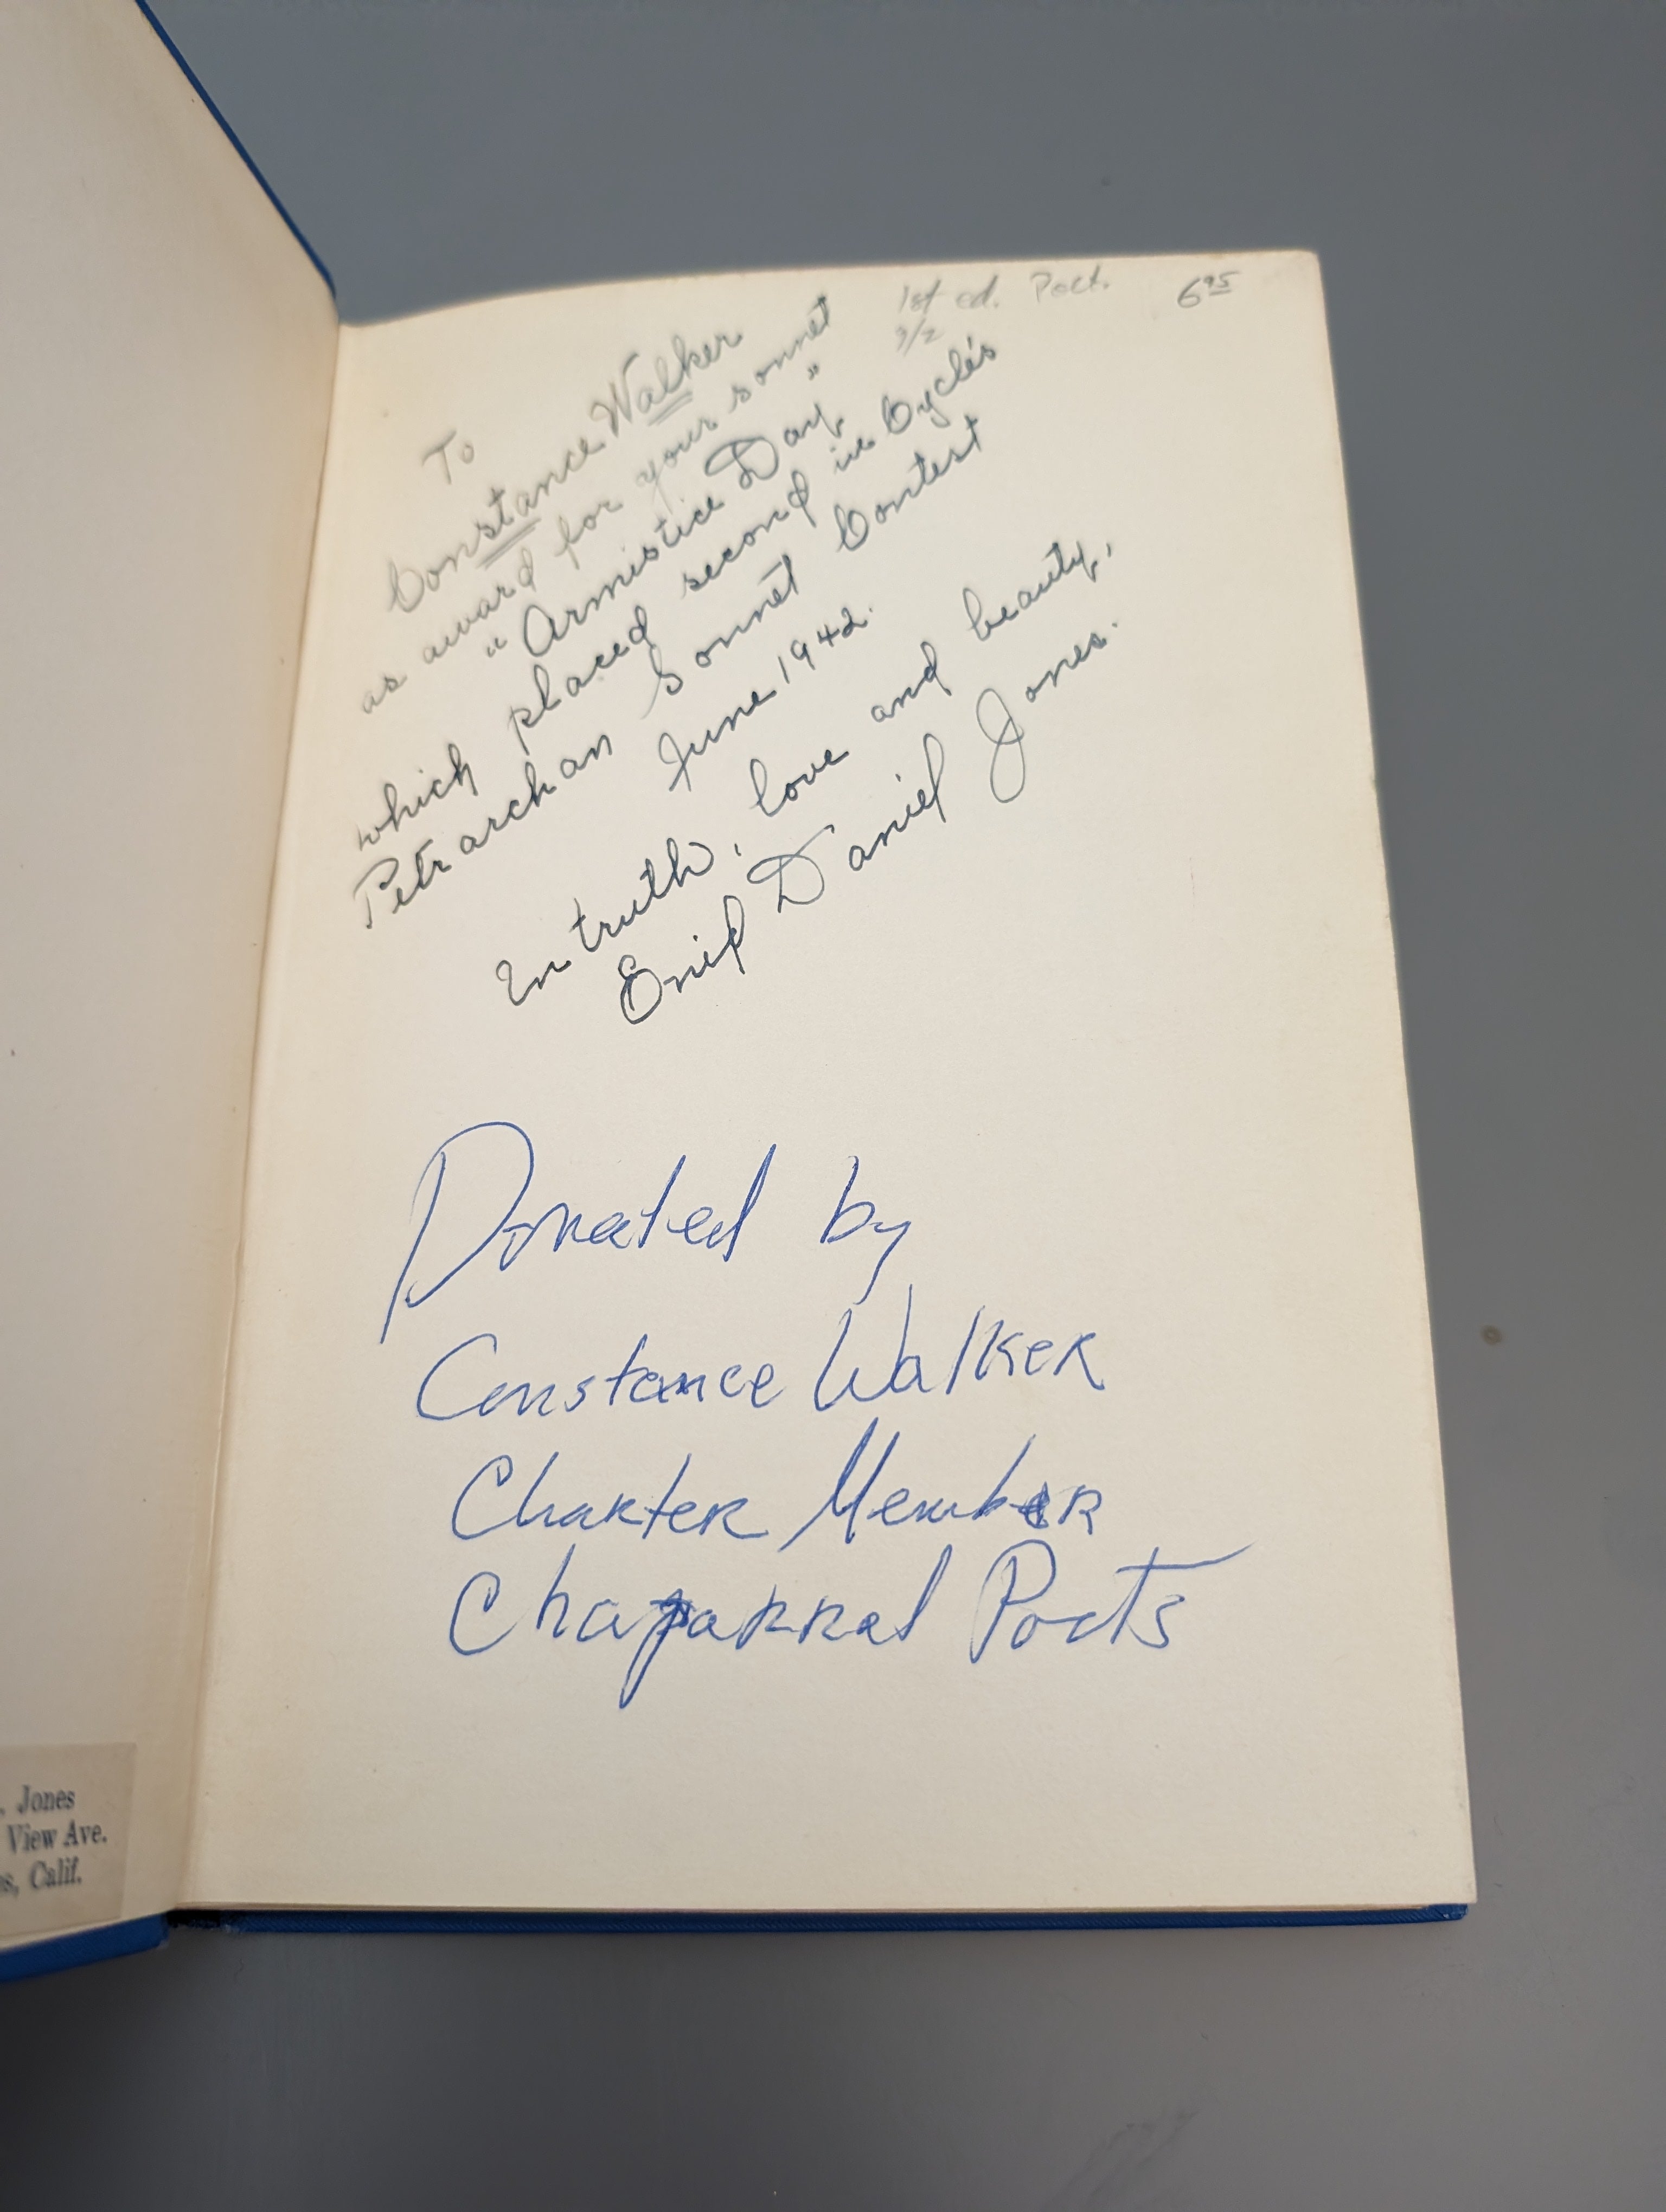 1st ed. Poet. 6 95
3/2
To
Constance Walker
as award for your sonnet
"Armistice Day,"
which placed second in Cycle's
Petrarchan Sonnet Contest
June 1942.
In truth, love and beauty,
Enid Daniel Jones.
Donated by
Constance Walker
Charter Member
Chaparral Poets
. Jones
View Ave.
s, Calif.